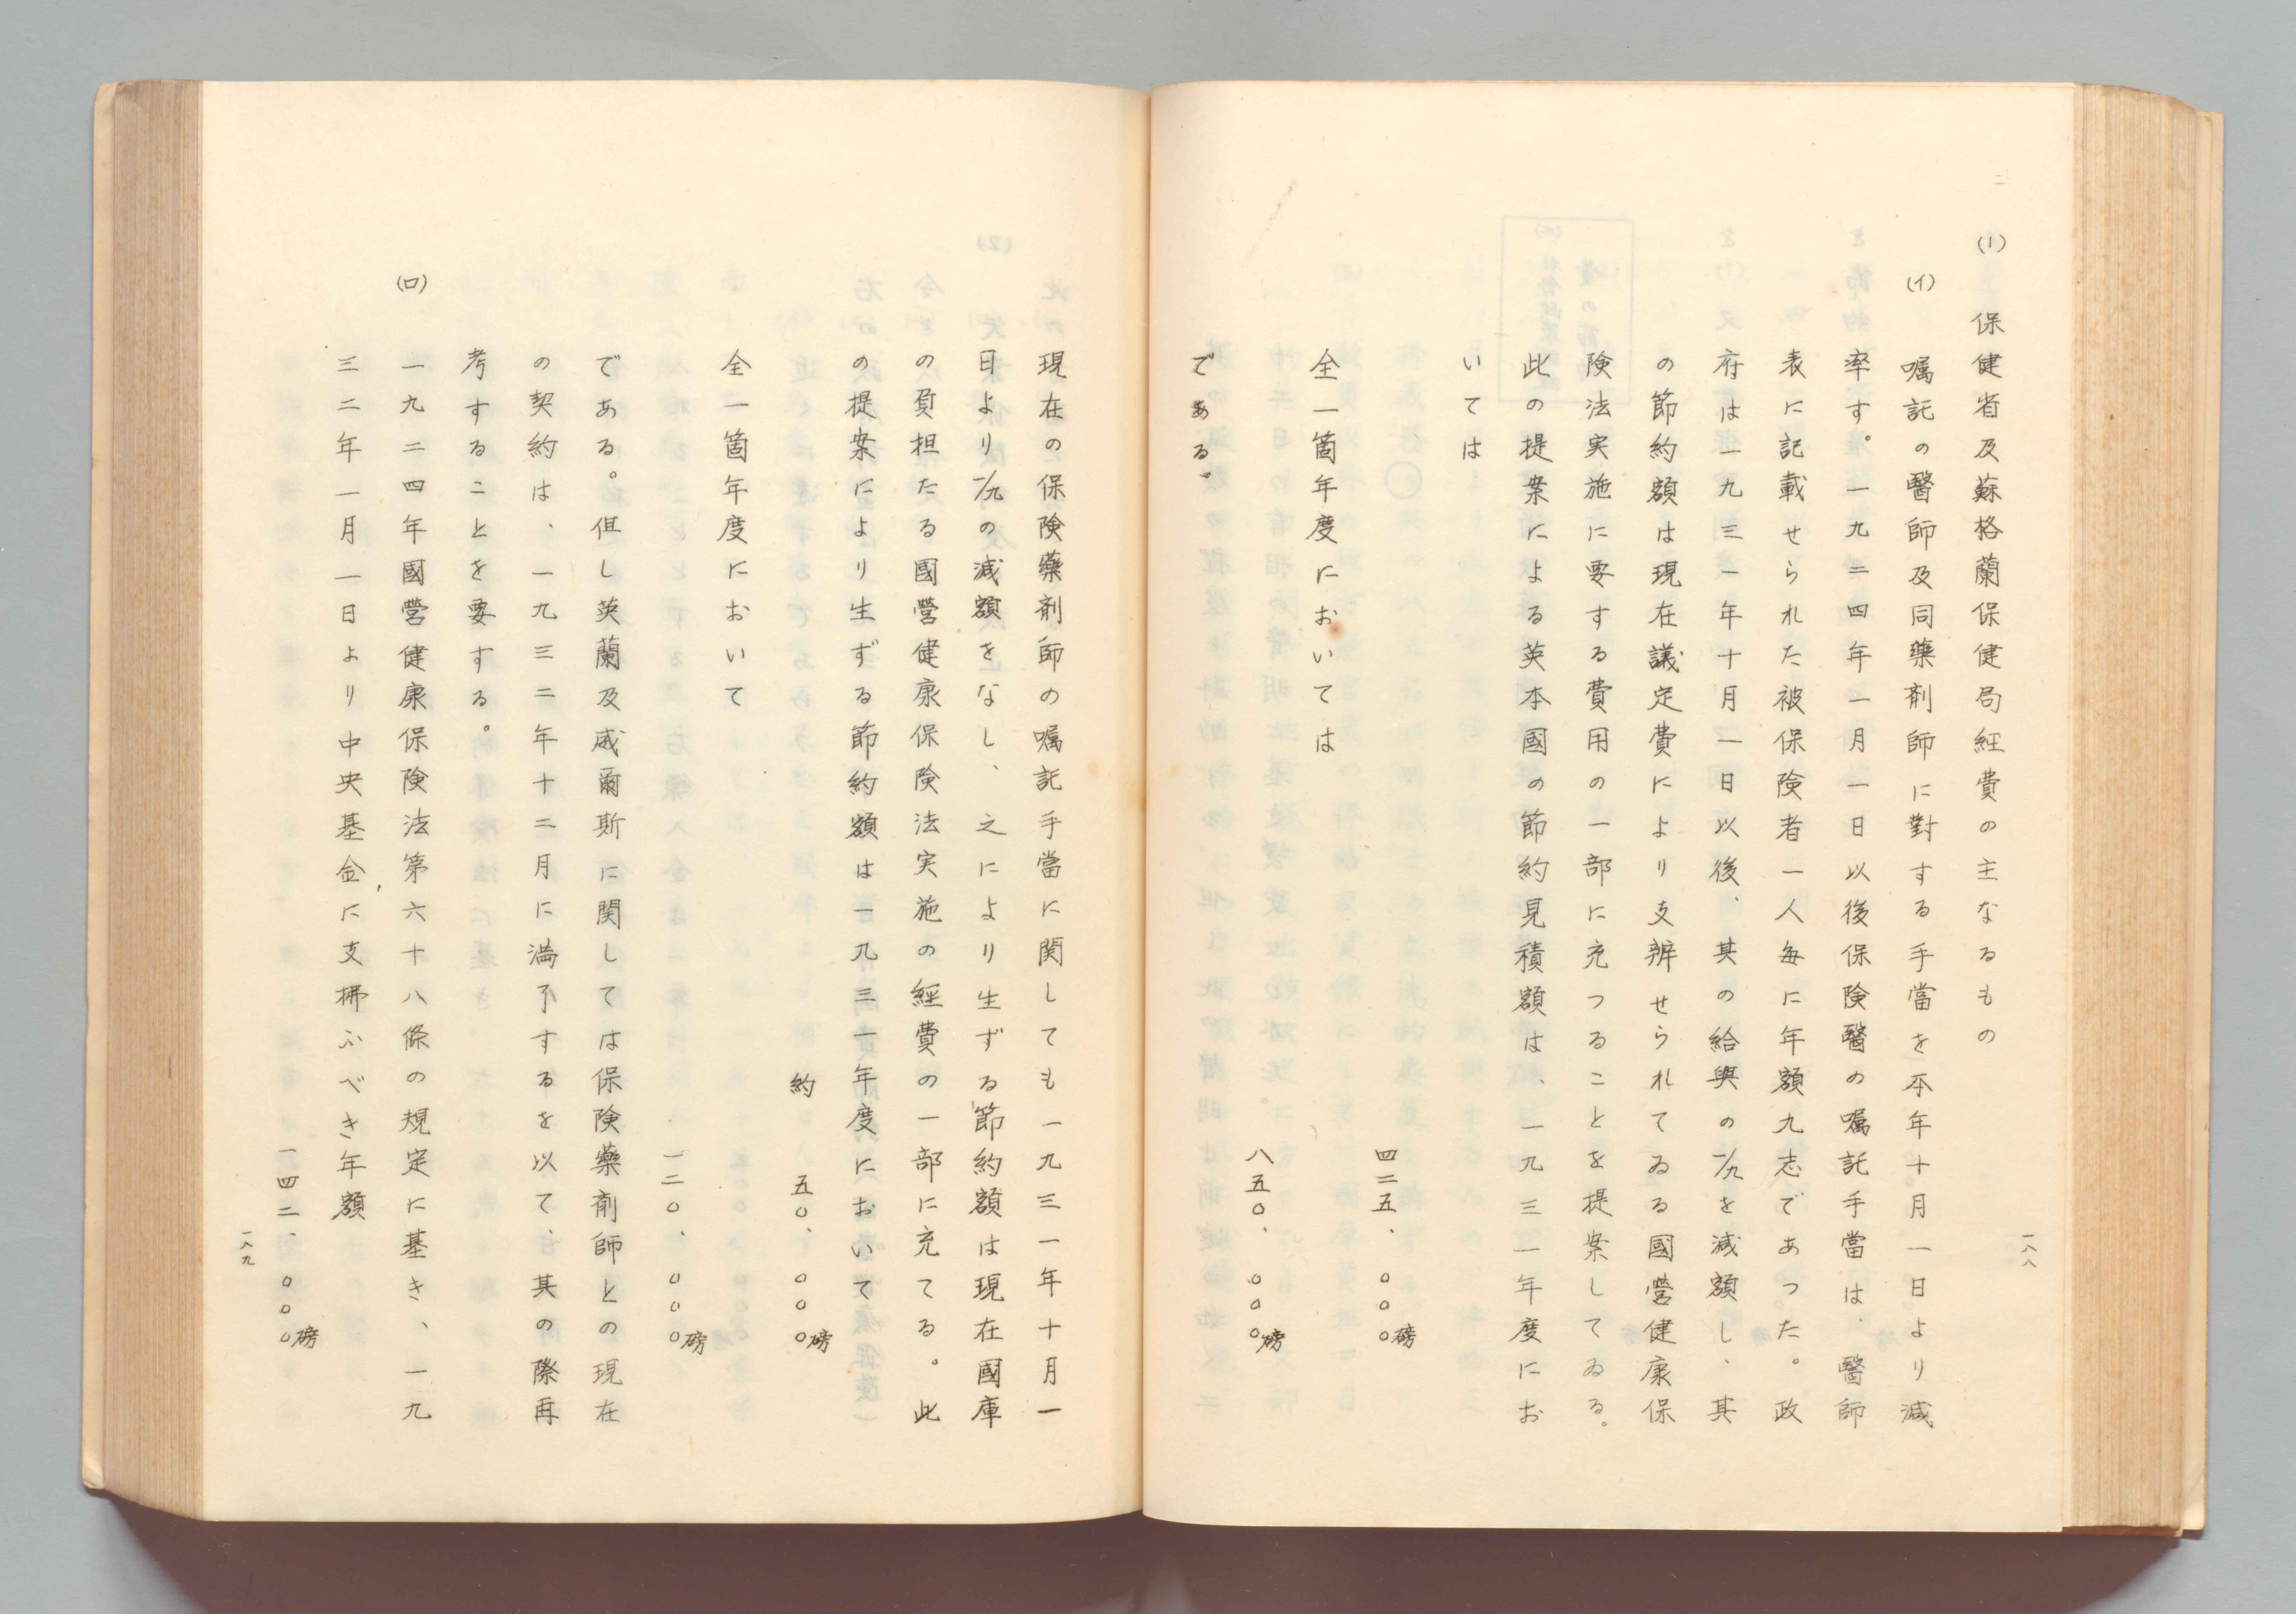 一八八
(1) 保健省及蘇格蘭保健局経費の主なるもの
(イ) 嘱託の醫師及同藥剤師に對する手當を本年十月一日より減
率す。一九二四年一月一日以後保険醫の嘱託手當は、醫師
表に記載せられた被保険者一人毎に年額九志であつた。政
府は一九三一年十月一日以後、其の給與の1/九を減額し、其
の節約額は現在議定費により支辨せられてゐる國營健康保
険法実施に要する費用の一部に充つることを提案してゐる。
此の提案による英本國の節約見積額は、一九三一年度にお
いては
四二五、〇〇〇磅
全一箇年度においては
八五〇、〇〇〇磅
である。
現在の保険藥剤師の嘱託手當に関しても一九三一年十月一
日より1/九の減額をなし、之により生ずる節約額は現在國庫
の負担たる國營健康保険法実施の經費の一部に充てる。此
の提案により生ずる節約額は一九三一年度において
約 五〇、〇〇〇磅
全一箇年度において
一二〇、〇〇〇磅
である。但し英蘭及威爾斯に関しては保険藥剤師との現在
の契約は、一九三二年十二月に満了するを以て、其の際再
考することを要する。
(ロ) 一九二四年國營健康保険法第六十八條の規定に基き、一九
三二年一月一日より中央基金に支拂ふべき年額
一四二、〇〇〇磅
一八九